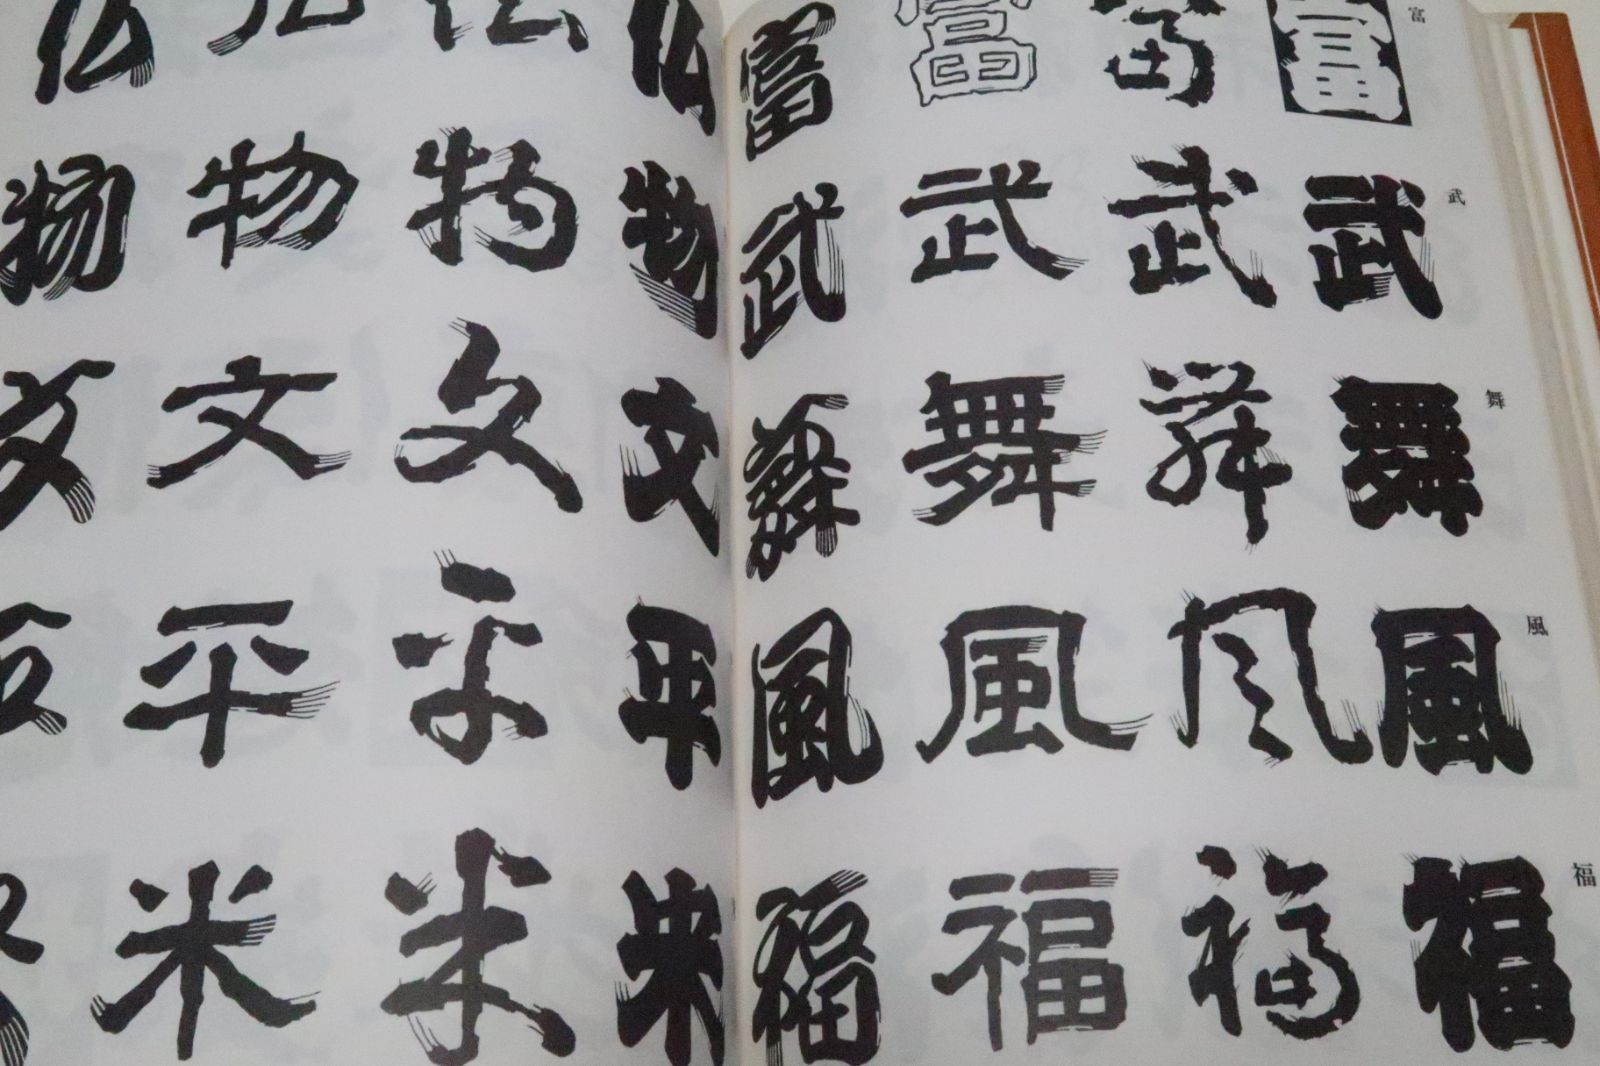 仏 仏 仏 仏 富 富 富 富 富
物 物 物 物 武 武 武 武 武
文 文 文 文 舞 舞 舞 舞 舞
平 平 平 平 風 風 風 風 風
米 米 米 米 福 福 福 福 福